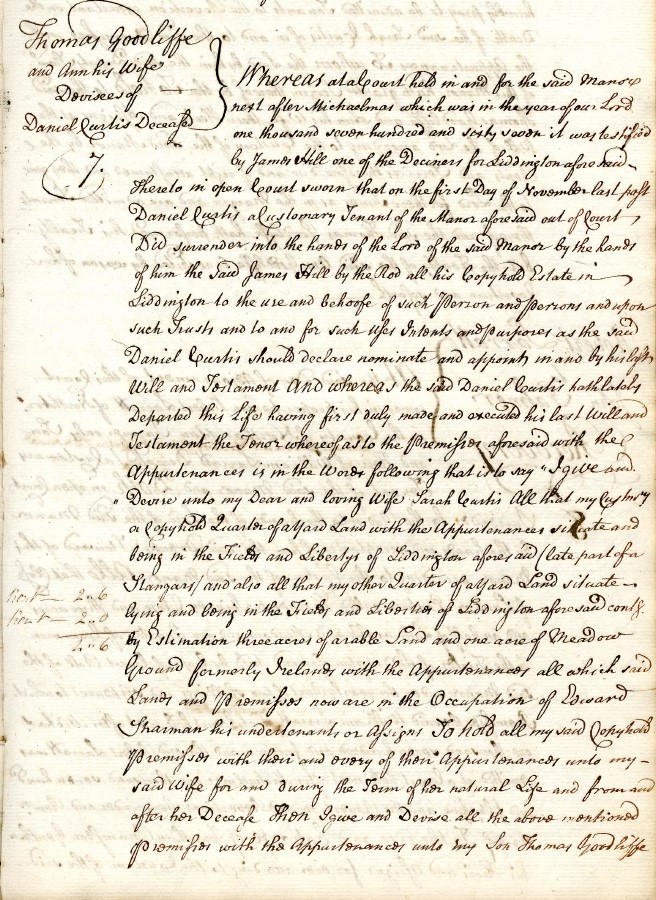 Thomas Goodliffe
and Ann his Wife
Devisees of
Daniel Curtis Deceased
7.
Whereas at a Court held in and for the said Manor
next after Michaelmas which was in the year of our Lord
one thousand seven hundred and sixty seven it was testifyed
by James Hill one of the Deciners for Liddington aforesaid
thereto in open Court sworn that on the first Day of November last past
Daniel Curtis a Customary Tenant of the Manor aforesaid out of Court
Did surrender into the hands of the Lord of the said Manor by the hands
of him the said James Hill by the Rod all his Copyhold Estate in
Liddington to the use and behoofe of such Person and Persons and upon
such Trusts and to and for such Uses Intents and purposes as the said
Daniel Curtis should declare nominate and appoint in and by his last
Will and Testament And whereas the said Daniel Curtis hath lately
Departed this Life having first duly made and executed his last Will and
Testament the Tenor whereof as to the Premisses aforesaid with the
Appurtenances is in the Words following that is to say "I give and
" Devise unto my Dear and loving Wife Sarah Curtis All that my Custm'y
or Copyhold Quarter of a Yard Land with the Appurtenances situate and
being in the Fields and Libertys of Liddington aforesaid (late part of a
Stangars) and also all that my other Quarter of a Yard Land situate
Rent — 2 " 6
lying and being in the Fields and Liberties of Liddington aforesaid consg.
Rent — 2 " 0
by Estimation three acres of arable Land and one acre of Meadow
4 " 6
Ground formerly Irelands with the Appurtenances all which said
Lands and Premisses now are in the Occupation of Edward
Sharman his undertenants or Assigns To hold all my said Copyhold
Premisses with their and every of their Appurtenances unto my
said Wife for and during the Term of her natural Life and from and
after her Decease Then I give and Devise all the above mentioned
Premisses with the Appurtenances unto my Son Thomas Goodliffe